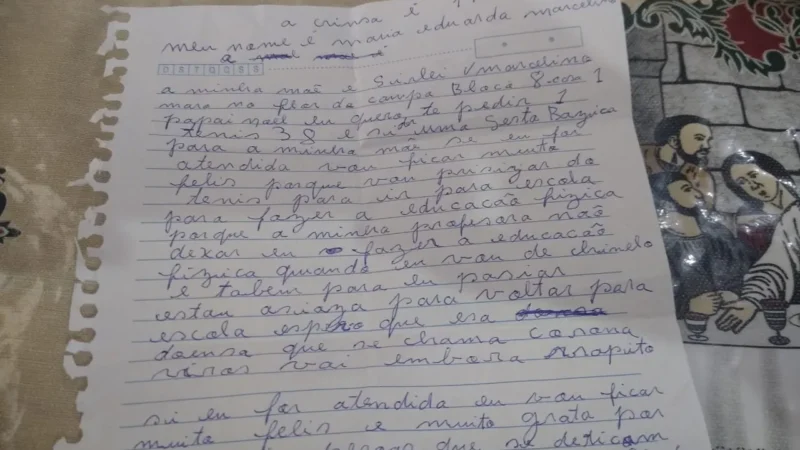 a crinsa é
meu nome é maria eduarda marcelino
a
a minha mãe e Sirlei V marcelino
mara no flor do campa Bloca 8. casa 1
papai noel eu quero te pedir 1
tenis 38 e si der uma Sesta Bazica
para a minha mãe se eu for
atendida vou ficar muito
felis porque vou presizar do
tenis para ir para escola
para fazer a educacão fizica
porque a minha profesora não
dexar eu fazer a educacão
fizica quando eu vou de chinelo
e tabem para eu pasiar
estou para voltar para
escola espero que esa
doensa que se chama corona
viros vai embora rrapito
si eu for atendida eu vou ficar
muito felis e muito grata por
que se deticam